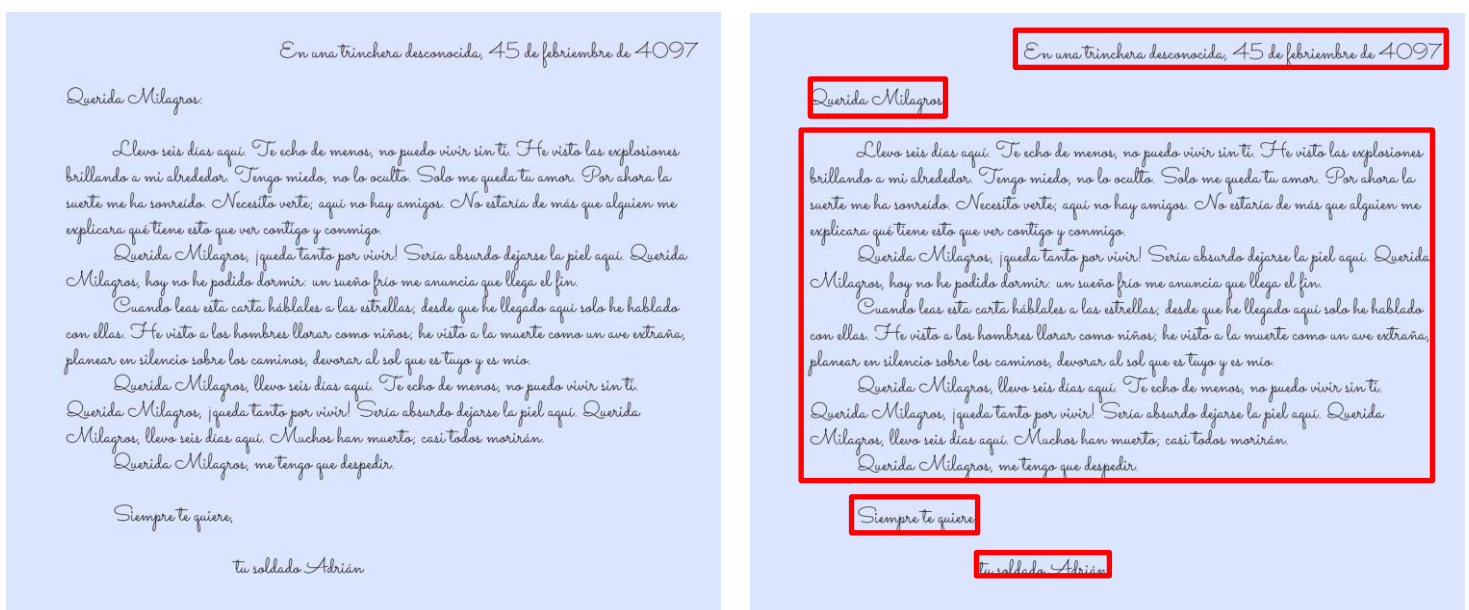 En una trinchera desconocida, 45 de febriembre de 4097
Querida Milagros:
Llevo seis días aquí. Te echo de menos, no puedo vivir sin ti. He visto las explosiones
brillando a mi alrededor. Tengo miedo, no lo oculto. Solo me queda tu amor. Por ahora la
suerte me ha sonreído. Necesito verte; aquí no hay amigos. No estaría de más que alguien me
explicara qué tiene esto que ver contigo y conmigo.
Querida Milagros, ¡queda tanto por vivir! Sería absurdo dejarse la piel aquí. Querida
Milagros, hoy no he podido dormir: un sueño frío me anuncia que llega el fin.
Cuando leas esta carta háblales a las estrellas; desde que he llegado aquí solo he hablado
con ellas. He visto a los hombres llorar como niños; he visto a la muerte como un ave extraña,
planear en silencio sobre los caminos, devorar al sol que es tuyo y es mío.
Querida Milagros, llevo seis días aquí. Te echo de menos, no puedo vivir sin ti.
Querida Milagros, ¡queda tanto por vivir! Sería absurdo dejarse la piel aquí. Querida
Milagros, llevo seis días aquí. Muchos han muerto; casi todos morirán.
Querida Milagros, me tengo que despedir.
Siempre te quiere,
tu soldado Adrián
En una trinchera desconocida, 45 de febriembre de 4097
Querida Milagros
Llevo seis días aquí. Te echo de menos, no puedo vivir sin ti. He visto las explosiones
brillando a mi alrededor. Tengo miedo, no lo oculto. Solo me queda tu amor. Por ahora la
suerte me ha sonreído. Necesito verte; aquí no hay amigos. No estaría de más que alguien me
explicara qué tiene esto que ver contigo y conmigo.
Querida Milagros, ¡queda tanto por vivir! Sería absurdo dejarse la piel aquí. Querida
Milagros, hoy no he podido dormir: un sueño frío me anuncia que llega el fin.
Cuando leas esta carta háblales a las estrellas; desde que he llegado aquí solo he hablado
con ellas. He visto a los hombres llorar como niños; he visto a la muerte como un ave extraña,
planear en silencio sobre los caminos, devorar al sol que es tuyo y es mío.
Querida Milagros, llevo seis días aquí. Te echo de menos, no puedo vivir sin ti.
Querida Milagros, ¡queda tanto por vivir! Sería absurdo dejarse la piel aquí. Querida
Milagros, llevo seis días aquí. Muchos han muerto; casi todos morirán.
Querida Milagros, me tengo que despedir.
Siempre te quiere
tu soldado Adrián